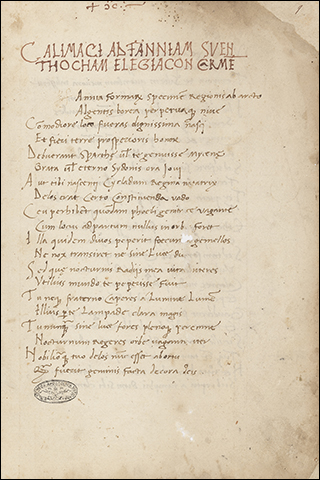 CALIMACI AD FANNIAM SVEN
THOCHAM ELEGIACON CARME
Annia formae specimen Regionis ab arcto
Algentis borea perpetuaque nive
Commodiore loco fueras dignissima nasci
Et fieri terre prosperioris honor
Debuerant Sparthe vel te genuisse Mycenę
Grata vel eterno Sydonis ora Iovi
Aut tibi nascenti Cycladum Regina natanti
Delos erat Certo Constituenda vado
Ceu perhibent quondam phoebi genitrice vagante
Cum locus ad partum nullus in orbe foret
Illa quidem divos peperit foecunda gemellos
Ne nox transiret ne sine Luce dies
Sed que nocturnis Radiis mea vita niteres
Vtilius mundo te peperisse fuit
Tu neque fraterno Caperes a Lumine Lumen
Illuvis pre Lampade clara magis
Tu nunquam sine luce fores plenoque perenne
Nocturnum Regeres orbe vagantis iter
Nobiliorque tuo delos nunc esset abortu
Quam fuerit geminis facta decora deis